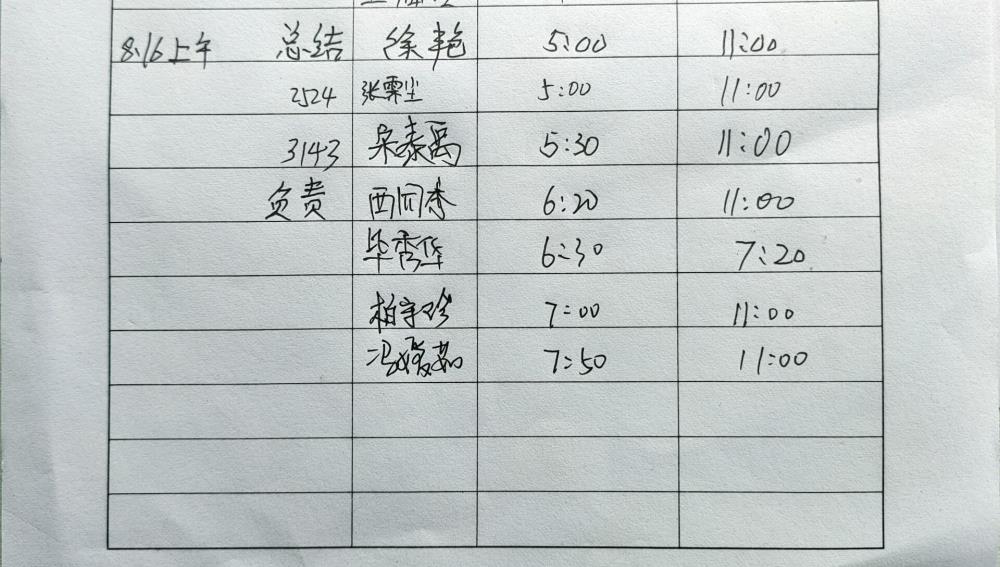 8.16上午 总结 徐艳 5:00 11:00
2524 张霁尘 5:00 11:00
3143 吴泰禹 5:30 11:00
负责 西同季 6:20 11:00
毕秀华 6:30 7:20
柏宇珍 7:00 11:00
冯媛茹 7:50 11:00